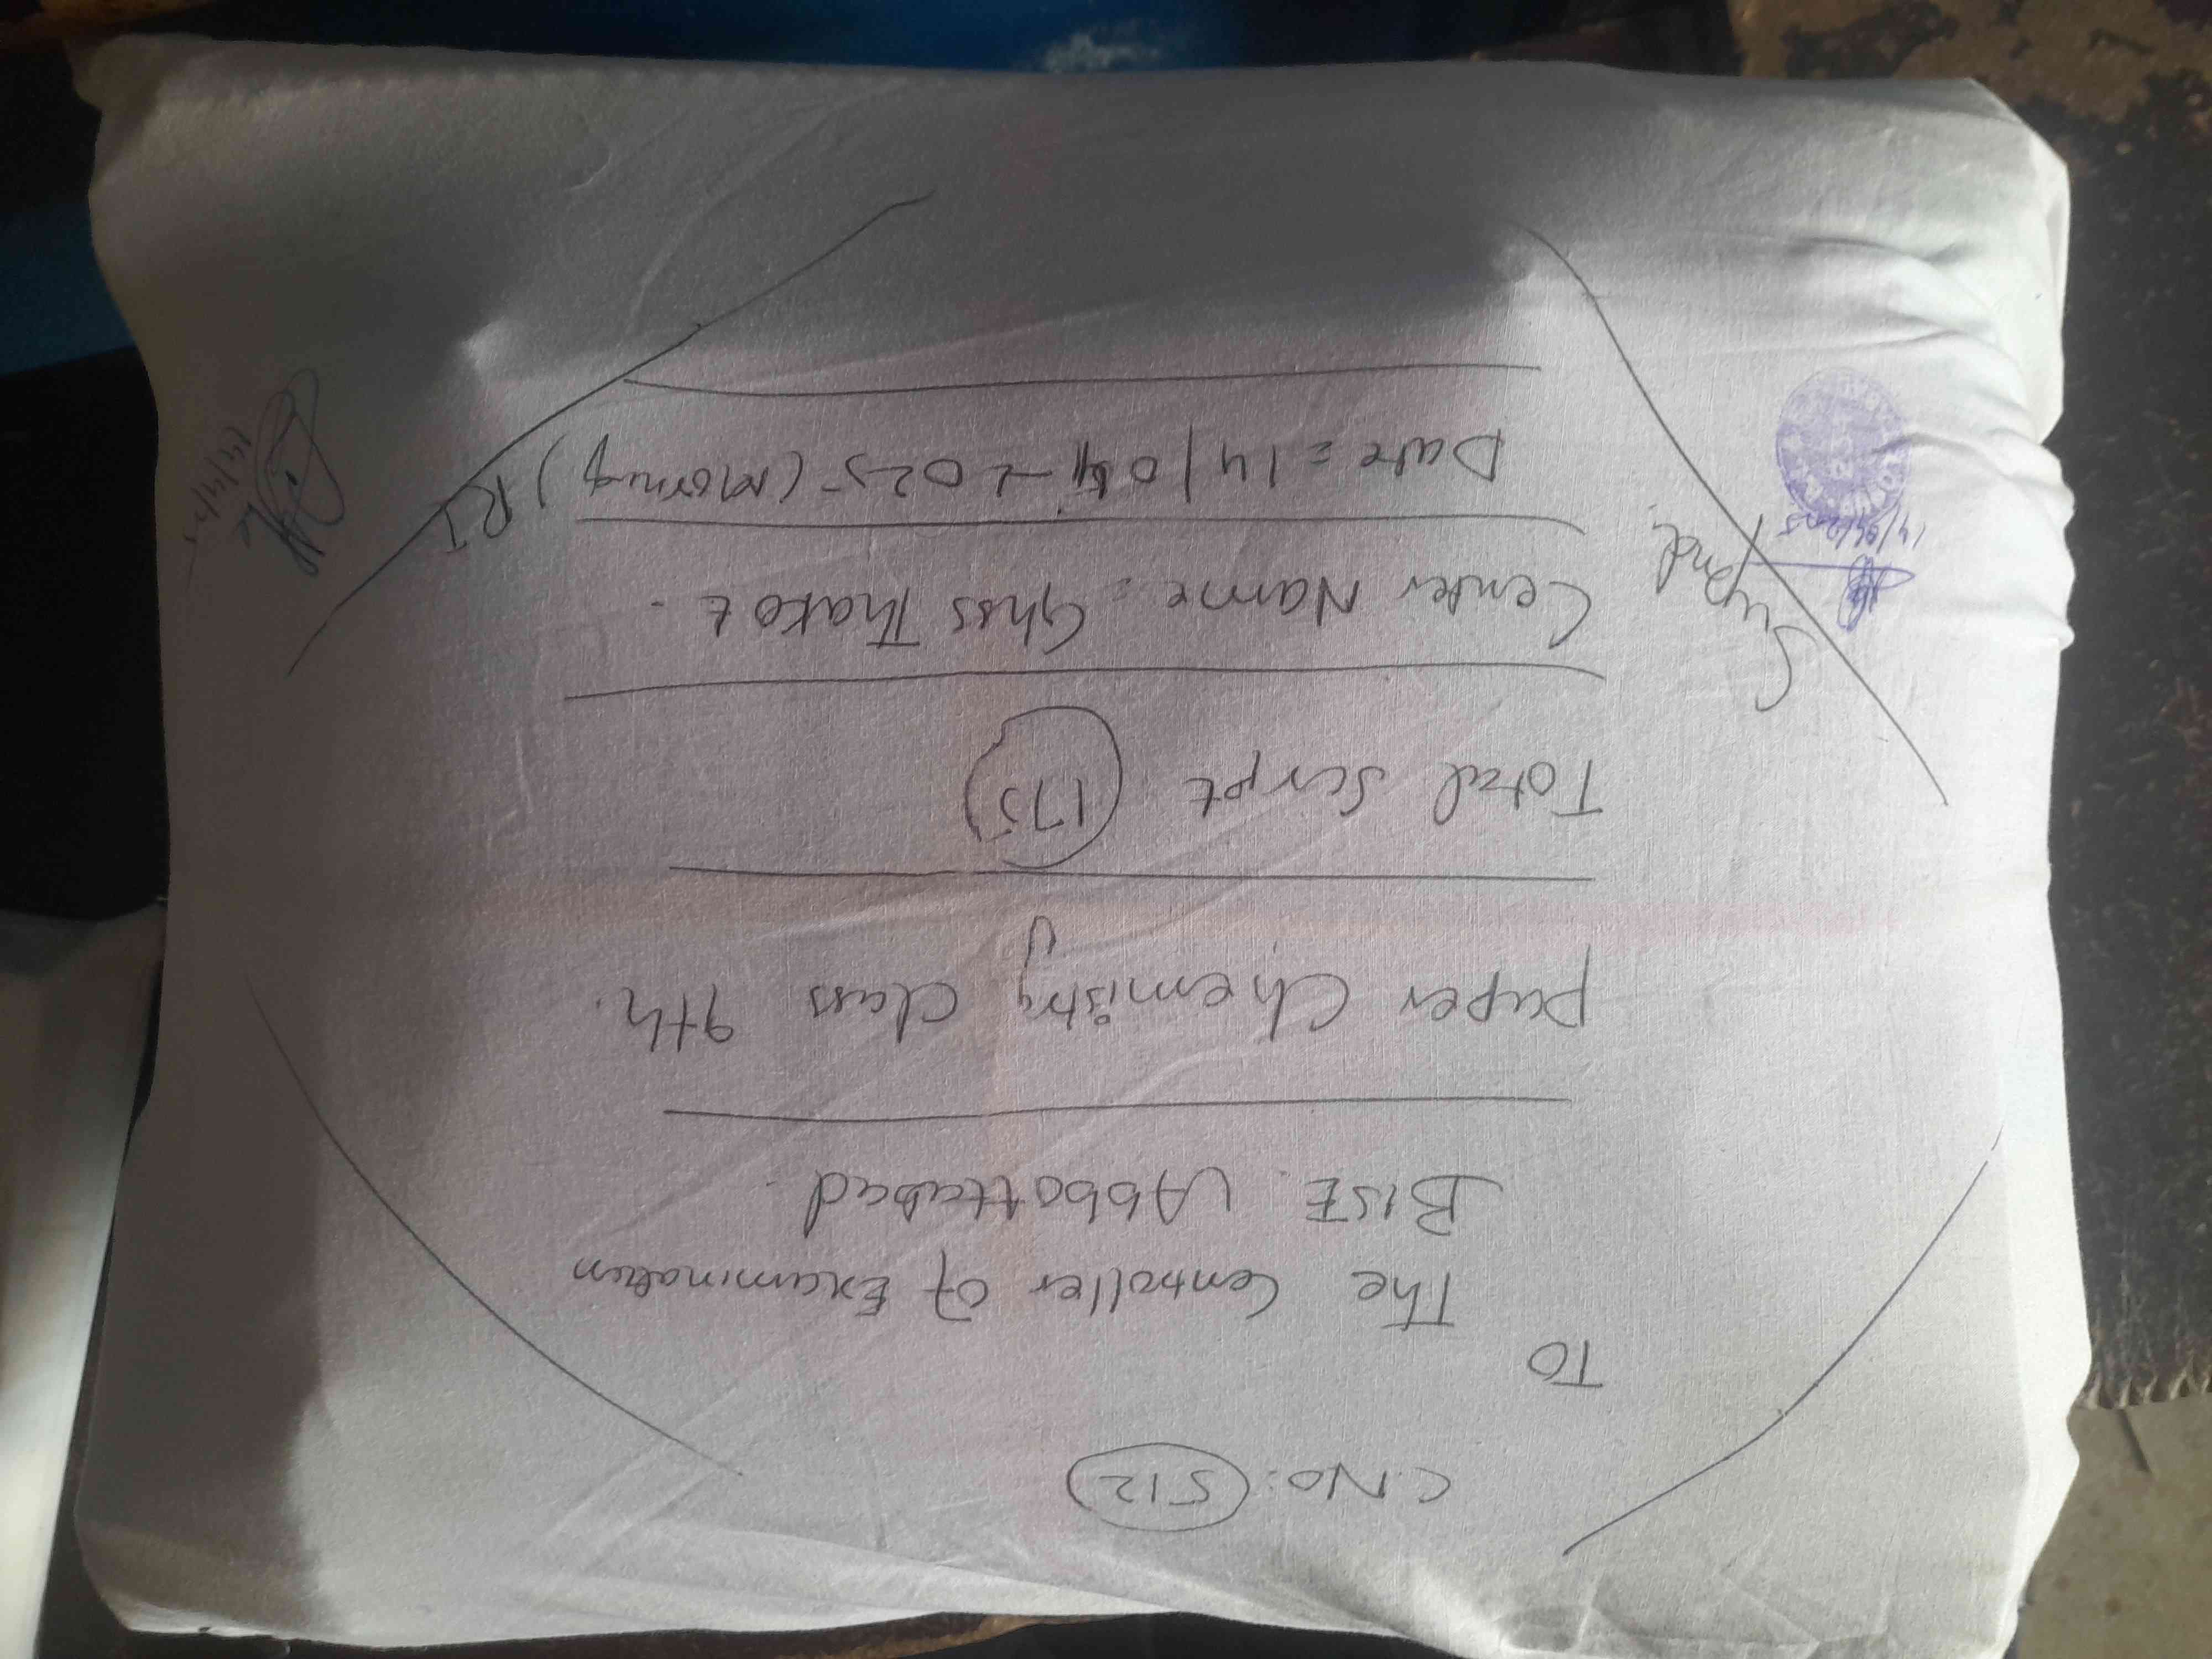 C.No: 512
To
The Controller of Examination
BISE Abbottabad.
Paper Chemistry Class 9th.
Total Script 175
Center Name = Ghss Thakot.
Date = 14/04-2025 (Morning)
Supnd.
RI
14/04/2025
14/4/25